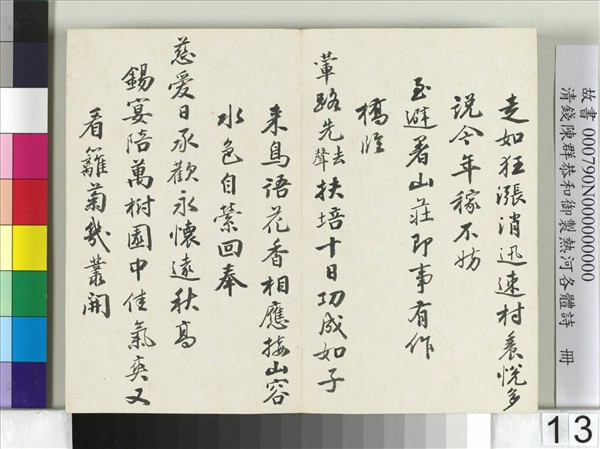 故書 000790N000000000
清錢陳群恭和御製熱河各體詩 冊
走如狂漲消迅速村農悅多
說今年稼不妨
至避暑山莊即事有作
橋
輦路先去聲扶培十日功成如子
来鳥語花香相應接山容
水色自縈回奉
慈愛日承歡永懷遠秋高
錫宴陪萬樹園中佳氣爽又
看籬菊幾叢開
13